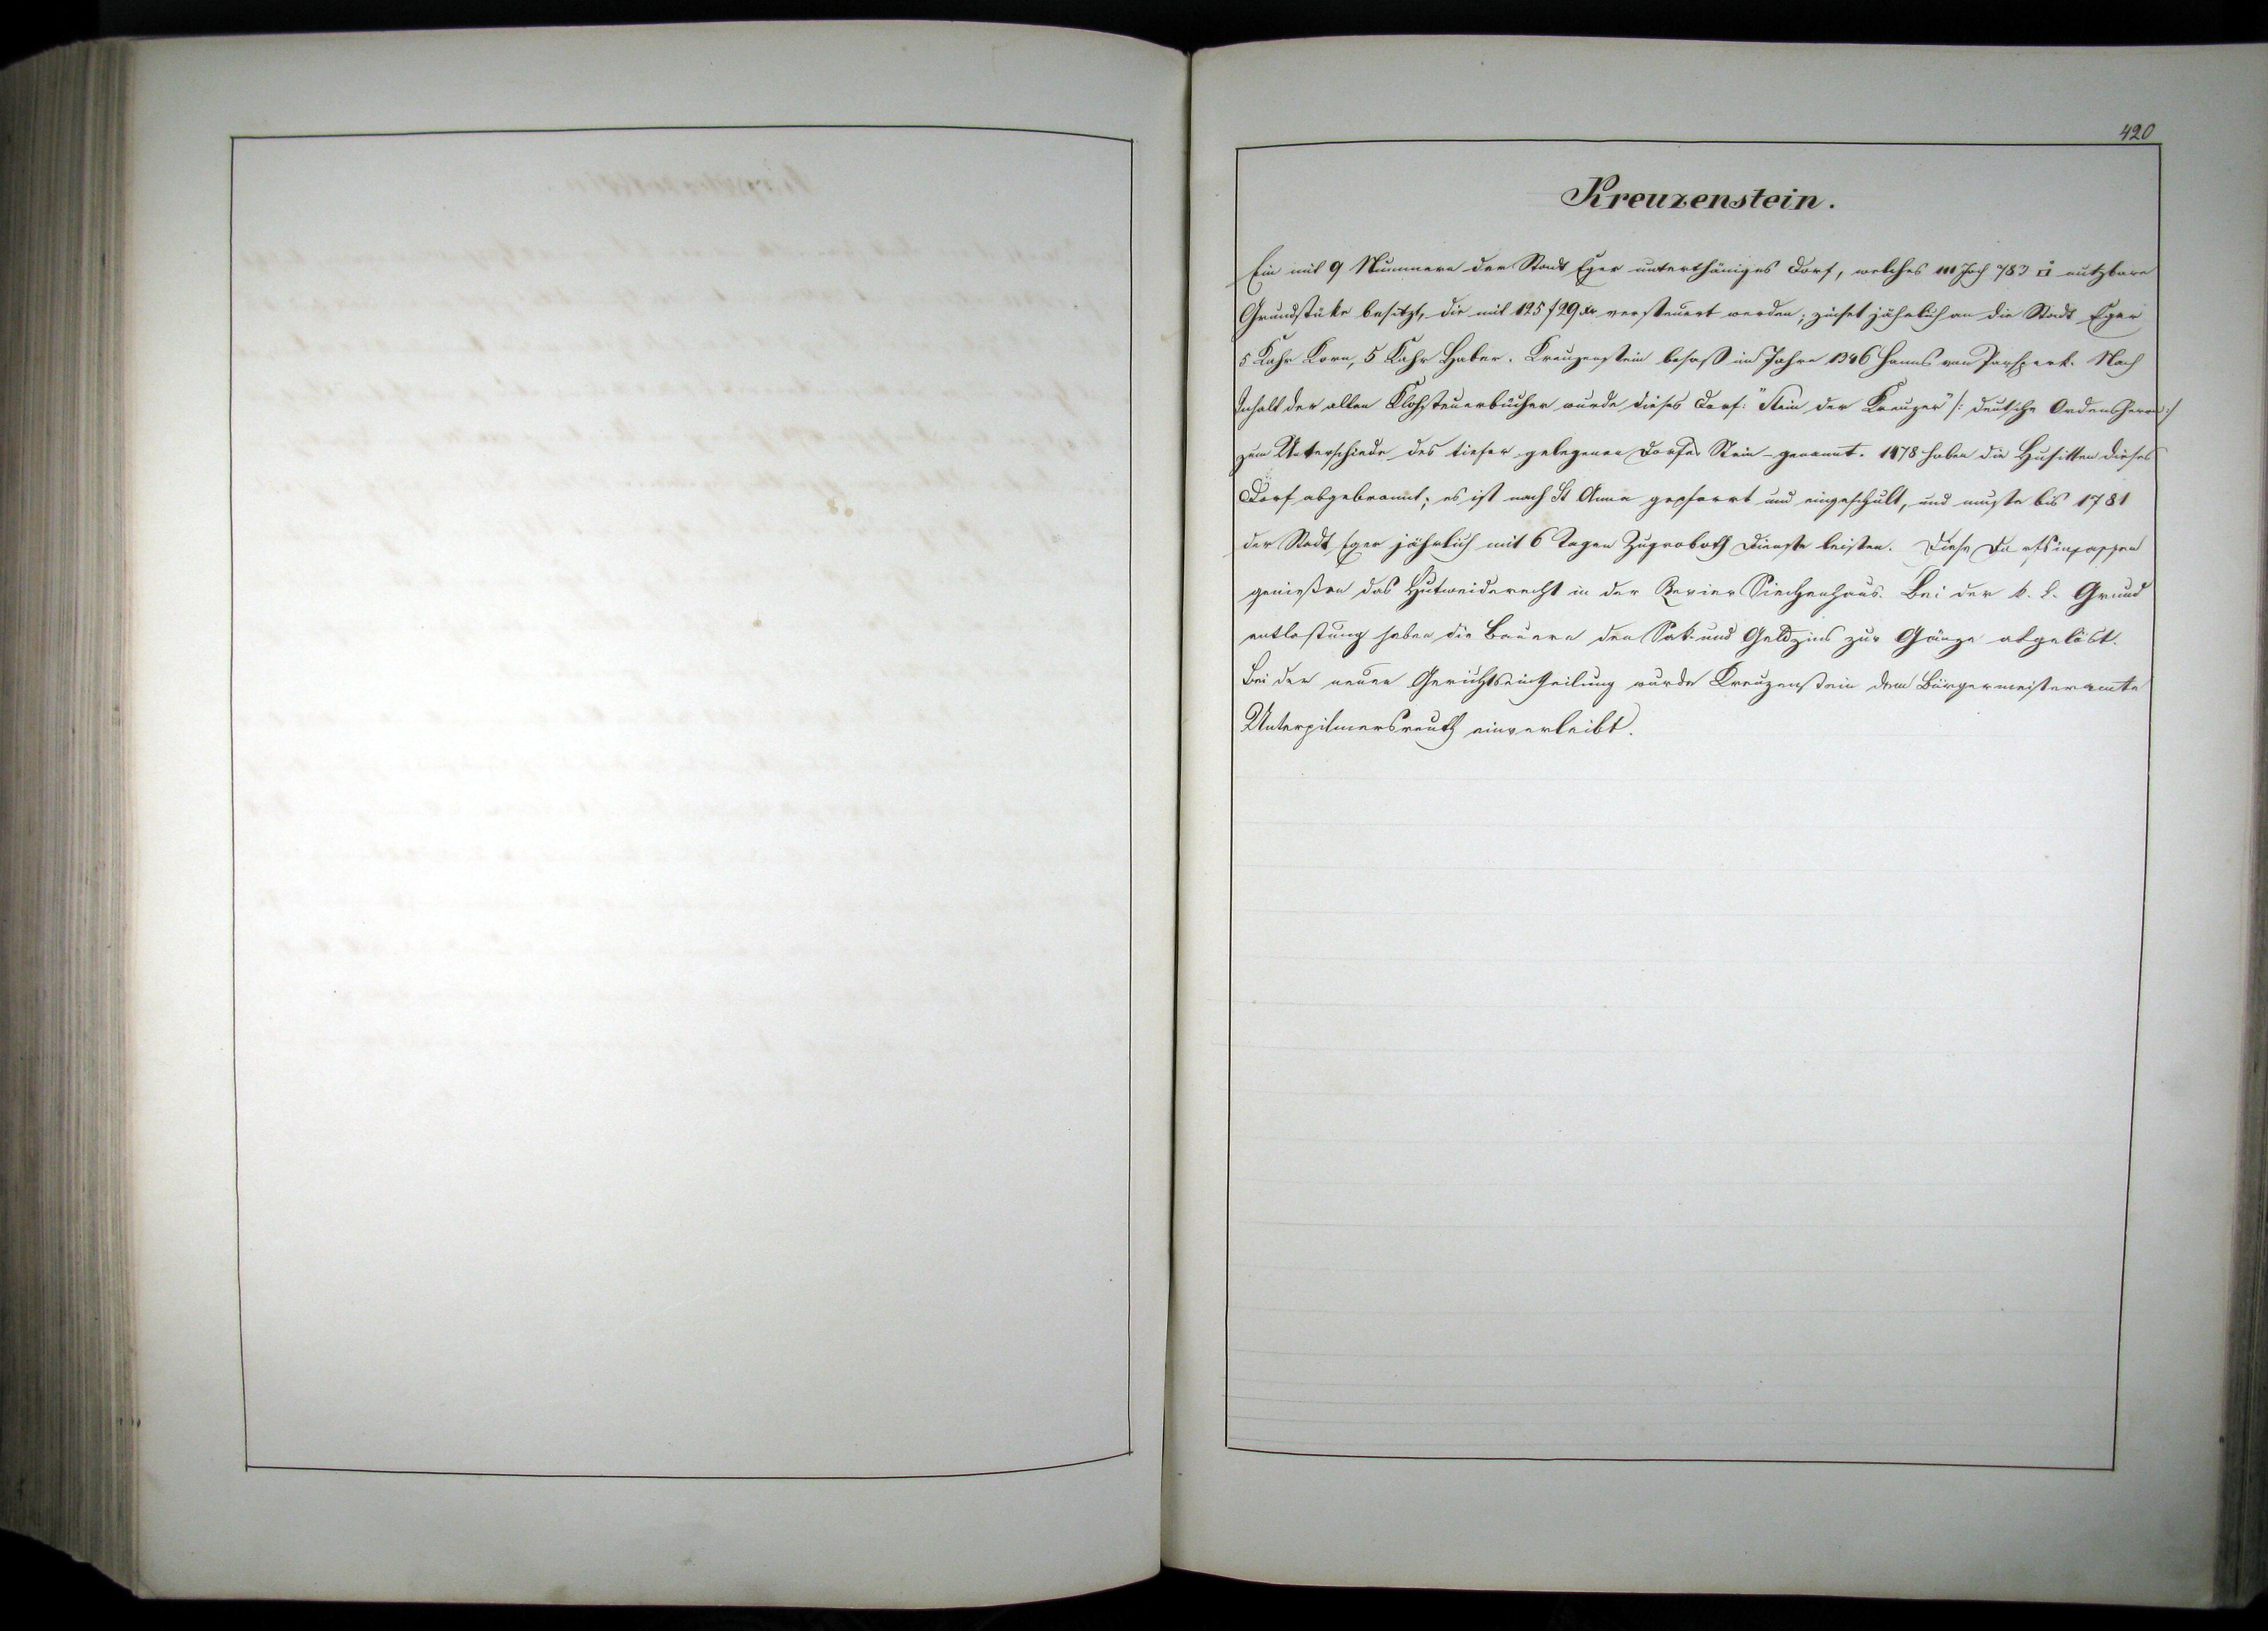 420
Kreuzenstein.
Ein mit 9 Nummern der Stadt Eger unterthäniges Dorf, welches 111 Joch 783 □° nutzbare
Grundstüke besitzt, die mit 125 f 29 xr versteuert werden; zinset jährlich an die Stadt Eger
5 Kahr Korn, 5 Kahr Haber. Kreuzenstein besaß im Jahre 1346 Hanns von Parsperk. Nach
Inhalt der alten Klosteuerbücher wurde dieses Dorf: "Stein der Kreuzer" /: deutsche Ordensherrn :/
zum Unterschiede des tiefer gelegenen Dorfes Stein - genannt. 1478 haben die Husitten dieses
Dorf abgebrannt; es ist nach St Anna gepfarrt und eingeschult, und mußte bis 1781
der Stadt Eger jährlich mit 6 Tagen Zugroboth Dienste leisten. Diese Dorfsinsassen
genießen das Hutweiderecht in der Revier Siechenhaus. Bei der k. k. Grund
entlastung haben die Bauern den Sak- und Geldzins zur Gänze abgelöst.
Bei der neuen Gerichtseintheilung wurde Kreuzenstein dem Bürgermeisteramte
Unterpilmersreuth einverleibt.